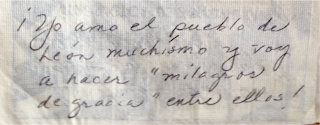 ¡Yo amo el pueblo de
León muchísmo y voy
a hacer "milagros
de gracia" entre ellos!